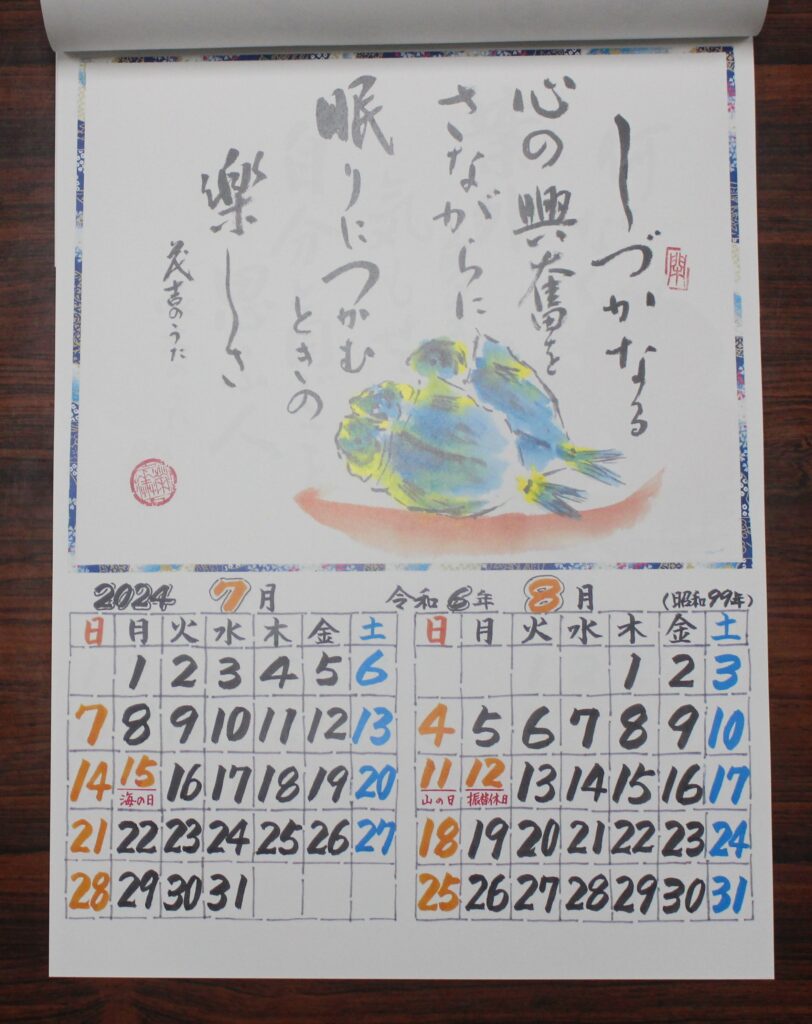 しづかなる
心の興奮を
さながらに
眠りにつかむ
ときの
楽しさ
茂吉のうた
2024 7月 令和6年 8月 (昭和99年)
日 月 火 水 木 金 土
1 2 3 4 5 6
7 8 9 10 11 12 13
14 15 16 17 18 19 20
海の日
21 22 23 24 25 26 27
28 29 30 31
日 月 火 水 木 金 土
1 2 3
4 5 6 7 8 9 10
11 12 13 14 15 16 17
山の日 振替休日
18 19 20 21 22 23 24
25 26 27 28 29 30 31